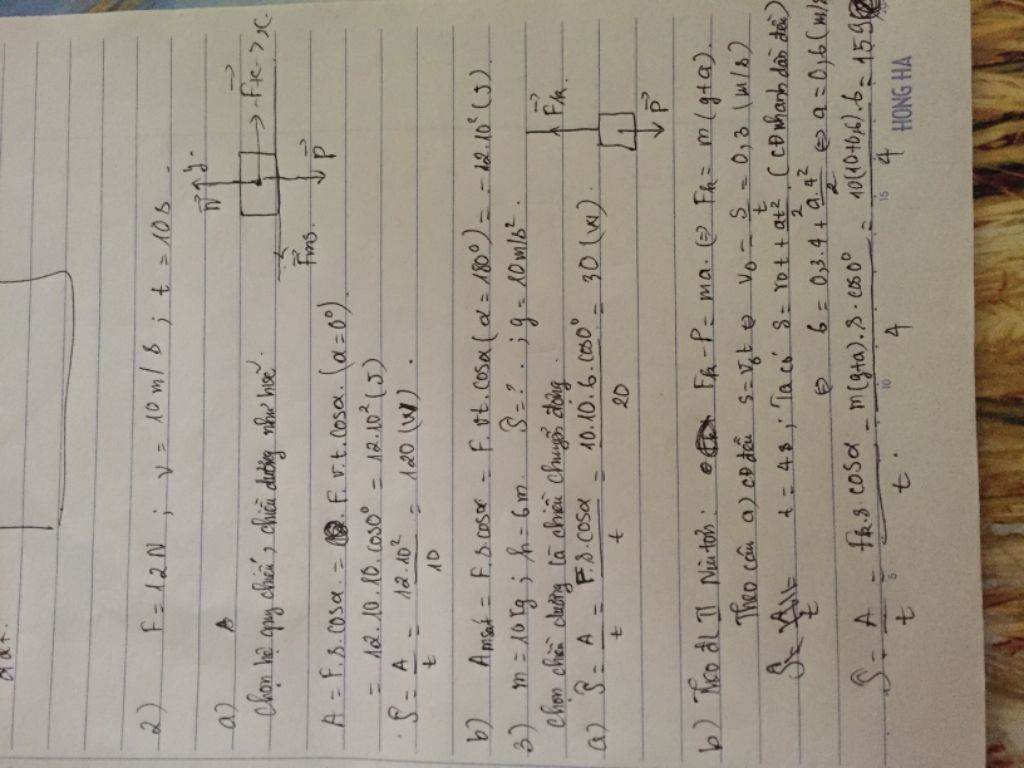 2) F = 12N ; v = 10 m/s ; t = 10s.
a)
Chọn hệ quy chiếu, chiều dương như hình.
N y.
Fk x
Fms.
P
A = F.s.cosα = F.v.t.cosα. (α = 0°)
= 12.10.10.cos0° = 12.10² (J)
P = A/t = 12.10²/10 = 120 (W).
b) Amsat = F.s.cosα = F.vt.cosα (α = 180°) = -12.10² (J).
3) m = 10kg ; h = 6m. P = ? . ; g = 10 m/s².
Chọn chiều dương là chiều chuyển động.
Fk.
P
a) P = A/t = F.s.cosα/t = 10.10.6.cos0°/20 = 30 (W).
b) Theo đl II Niutơn: Fk - P = ma. ⇔ Fk = m(g+a).
Theo câu a) cđ đều s = v₀t ⇔ v₀ = s/t = 0,3 (m/s)
t = 4s ; Ta có s = v₀t + at²/2. (CĐ nhanh dần đều)
⇔ 6 = 0,3.4 + a4²/2 ⇔ a = 0,6 (m/s
P = A/t = Fk.s.cosα/t. = m(g+a).s.cos0°/4 = 10(10+0,6).6/4 = 159
5 10 15
HONG HA